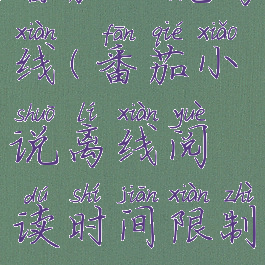 xiàn fān qié xiǎo
线(番茄小
shuō lí xiàn yuè
说离线阅
dú shí jiān xiàn zhì
读时间限制